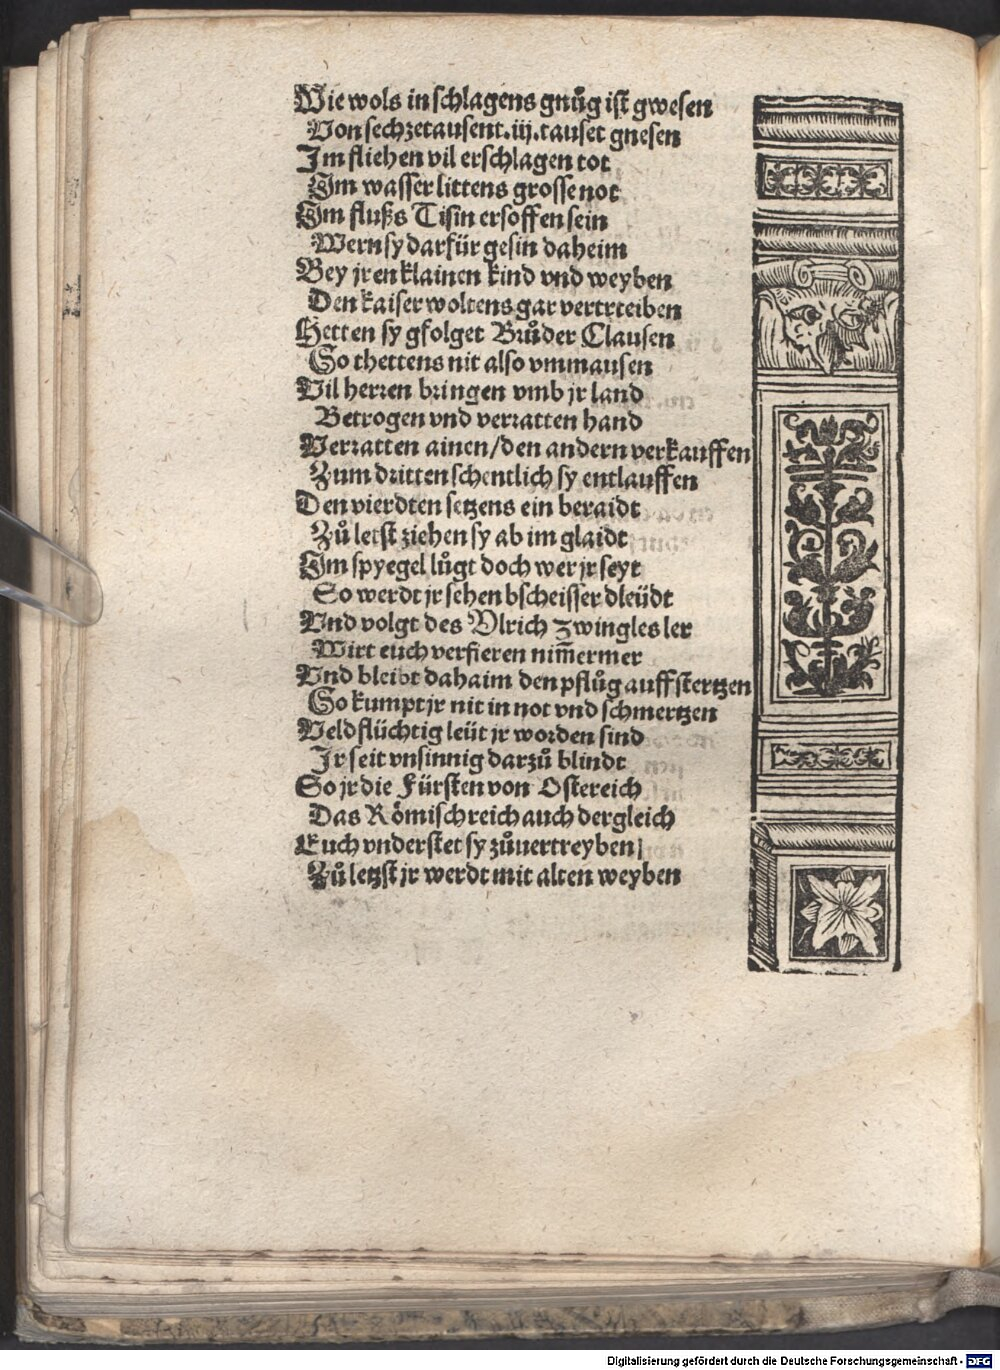 Wie wols in schlagens gnůg ist gwesen
Von sechzetausent.iij.tauset gnesen
Im fliehen vil erschlagen tot
Im wasser littens grosse not
Im flußs Tisin ersoffen sein
Wern sy darfür gesin daheim
Bey jren klainen kind vnd weyben
Den kaiser woltens gar vertrteiben
Hetten sy gfolget Brůder Clausen
So thettens nit also vmmausen
Vil herren bringen vmb jr land
Betrogen vnd verratten hand
Verratten ainen/den andern verkauffen
Zum dritten schentlich sy entlauffen
Den vierdten setzens ein beraidt
Zů letst ziehen sy ab im glaidt
Im spyegel lůgt doch wer jr seyt
So werdt jr sehen bscheisser dleüdt
Vnd volgt des Vlrich Zwingles ler
Wirt euch verfieren nim̄ermer
Vnd bleibt dahaim den pflůg auff stertzen
So kumpt jr nit in not vnd schmertzen
Veldflüchtig leüt jr worden sind
Ir seit vnsinnig darzů blindt
So jr die Fürsten von Ostereich
Das Römisch reich auch dergleich
Euch vnderstet sy zůuertreyben
Zů letzst jr werdt mit alten weyben
Digitalisierung gefördert durch die Deutsche Forschungsgemeinschaft - DFG